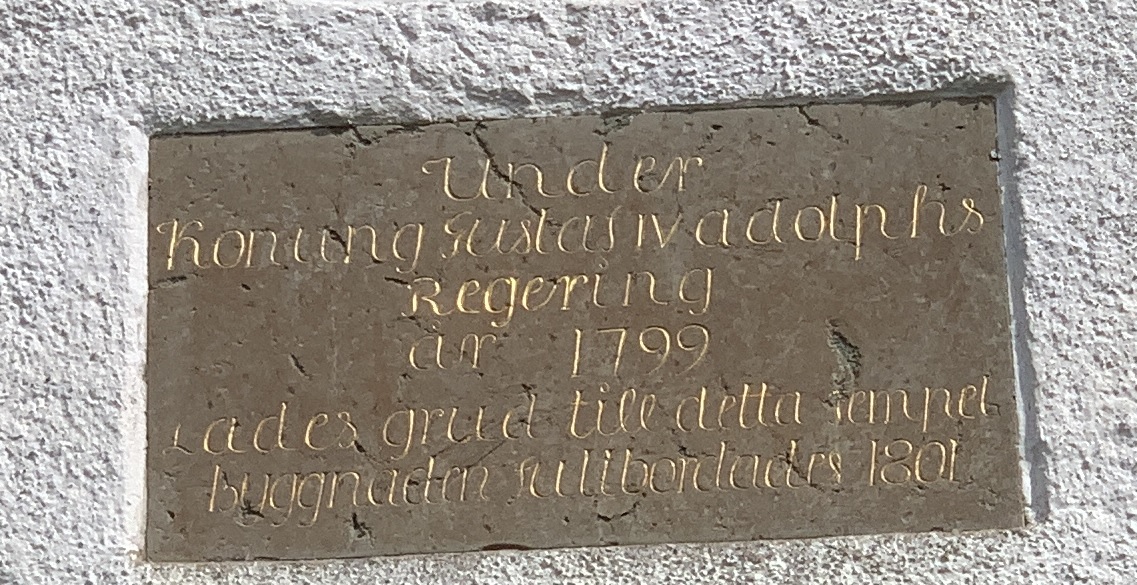 Under
Konung Gustaf IV adolphs
Regering
år 1799
Lades grud till detta Tempel
byggnaden fullbordades 1801